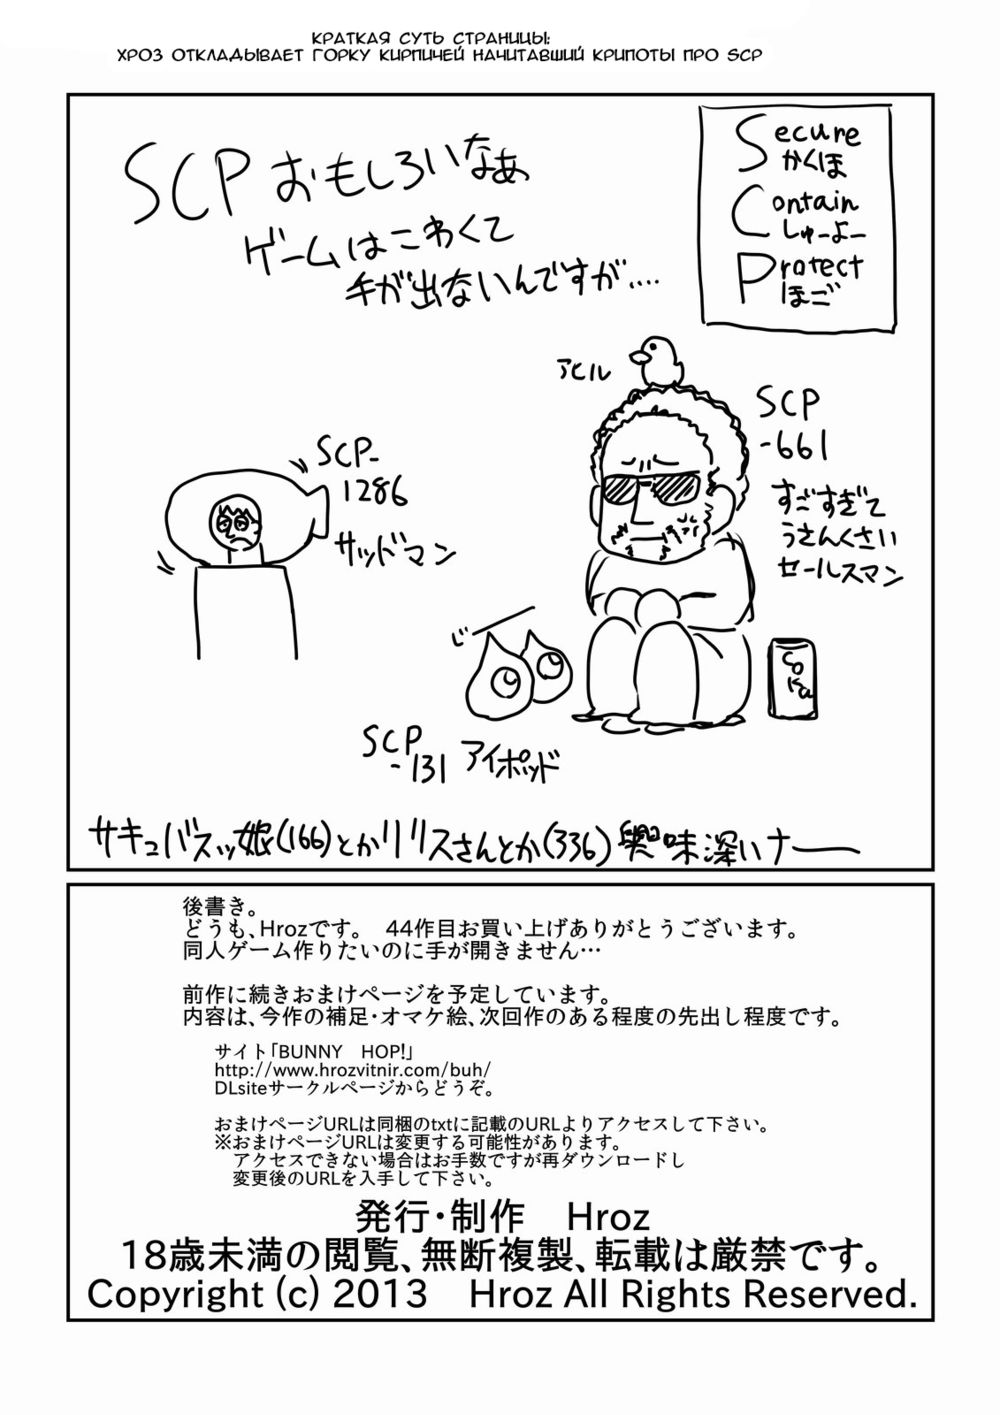 КРАТКАЯ СУТЬ СТРАНИЦЫ:
ХРОЗ ОТКЛАДЫВАЕТ ГОРКУ КИРПИЧЕЙ НАЧИТАВШИЙ КРИПОТЫ ПРО SCP
SCP おもしろいなぁ
ゲームはこわくて
手が出ないんですが....
Secure
かくほ
Contain
しゅーよー
Protect
ほご
アヒル
SCP
-661
すごすぎて
うさんくさい
セールスマン
SCP-
1286
サッドマン
じー
Coka
SCP
-131 アイポッド
サキュバスッ娘(166)とかリリスさんとか(336)興味深いナー
後書き。
どうも、Hrozです。 44作目お買い上げありがとうございます。
同人ゲーム作りたいのに手が開きません…
前作に続きおまけページを予定しています。
内容は、今作の補足・オマケ絵、次回作のある程度の先出し程度です。
サイト「BUNNY HOP!」
http://www.hrozvitnir.com/buh/
DLsiteサークルページからどうぞ。
おまけページURLは同梱のtxtに記載のURLよりアクセスして下さい。
※おまけページURLは変更する可能性があります。
アクセスできない場合はお手数ですが再ダウンロードし
変更後のURLを入手して下さい。
発行・制作 Hroz
18歳未満の閲覧、無断複製、転載は厳禁です。
Copyright (c) 2013 Hroz All Rights Reserved.